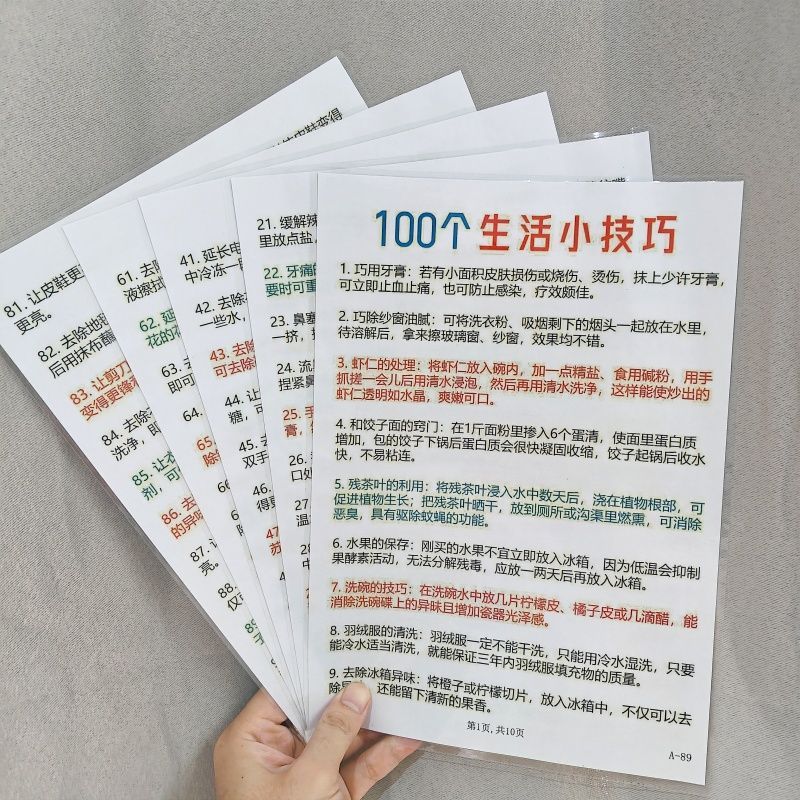 100个生活小技巧
1. 巧用牙膏：若有小面积皮肤损伤或烧伤、烫伤，抹上少许牙膏，
可立即止血止痛，也可防止感染，疗效颇佳。
2. 巧除纱窗油腻：可将洗衣粉、吸烟剩下的烟头一起放在水里，
待溶解后，拿来擦玻璃窗、纱窗，效果均不错。
3. 虾仁的处理：将虾仁放入碗内，加一点精盐、食用碱粉，用手
抓搓一会儿后用清水浸泡，然后再用清水洗净，这样能使炒出的
虾仁透明如水晶，爽嫩可口。
4. 和饺子面的窍门：在1斤面粉里掺入6个蛋清，使面里蛋白质
增加，包的饺子下锅后蛋白质会很快凝固收缩，饺子起锅后收水
快，不易粘连。
5. 残茶叶的利用：将残茶叶浸入水中数天后，浇在植物根部，可
促进植物生长；把残茶叶晒干，放到厕所或沟渠里燃熏，可消除
恶臭，具有驱除蚊蝇的功能。
6. 水果的保存：刚买的水果不宜立即放入冰箱，因为低温会抑制
果酵素活动，无法分解残毒，应放一两天后再放入冰箱。
7. 洗碗的技巧：在洗碗水中放几片柠檬皮、橘子皮或几滴醋，能
消除洗碗碟上的异味且增加瓷器光泽感。
8. 羽绒服的清洗：羽绒服一定不能干洗，只能用冷水湿洗，只要
能冷水适当清洗，就能保证三年内羽绒服填充物的质量。
9. 去除冰箱异味：将橙子或柠檬切片，放入冰箱中，不仅可以去
除异，还能留下清新的果香。
第1页,共10页
A-89
21. 缓解辣
里放点盐,
22. 牙痛的
要时可重
23. 鼻塞
一挤，
24. 流
捏紧鼻
25. 手
膏，
26.
口处
27.
温
28
41. 延长电
中冷冻一
42. 去除
一些水，
43. 去除
可去除
44. 让
糖，可
45. 去
双手
46.
得更
47
苏
61. 去除
液擦拭
62. 延
花的
63. 去
即可
64.
65.
除
66
81. 让皮鞋更
更亮。
82. 去除地
后用抹布蘸
83. 让剪刀
变得更锋
84. 去除
洗净，即
85. 让衣
剂，可
86. 去
的异味
87. 让
亮。
88.
仅可
89